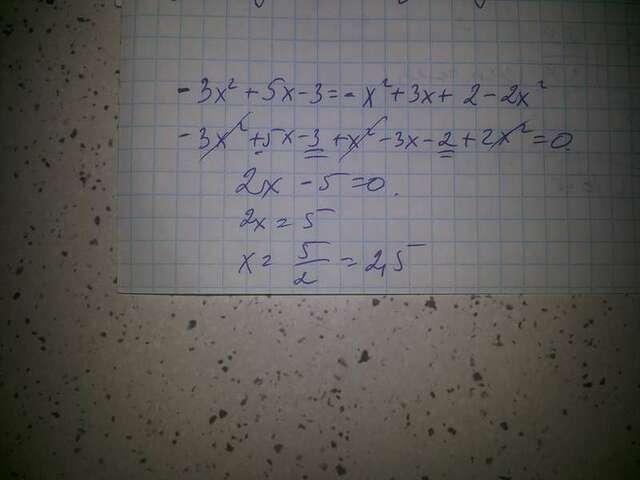 - 3x² + 5x - 3 = - x² + 3x + 2 - 2x²
- 3x² + 5x - 3 + x² - 3x - 2 + 2x² = 0.
2x - 5 = 0.
2x = 5
x = 5/2 = 2,5